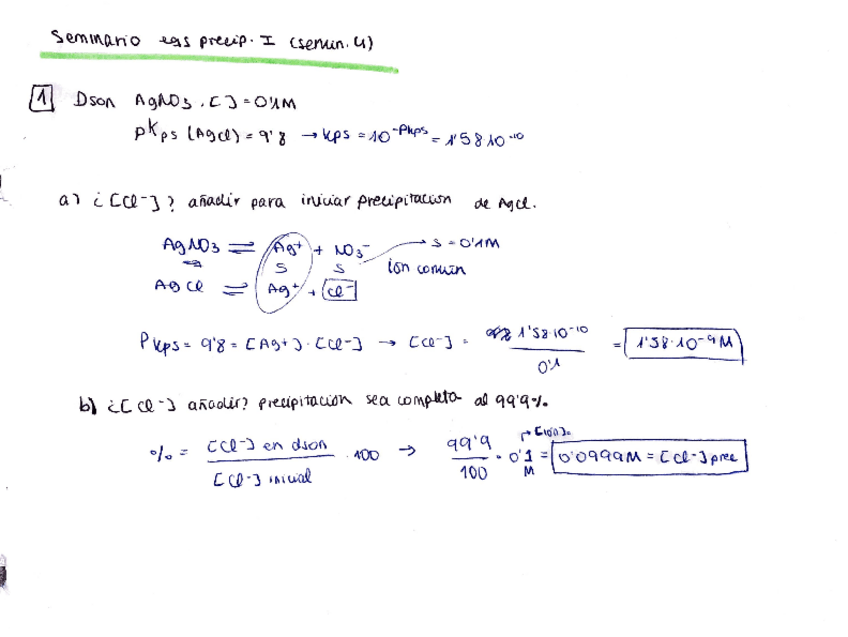 Seminario eqs precip. I (semin. 4)
1 Dson AgNO3. [ ] = 0'1M
pKps (AgCl) = 9'8 → Kps = 10^-pKps = 1'58·10^-10
a) ¿[Cl-]? añadir para iniciar precipitación de AgCl.
AgNO3 ⇌ Ag+ + NO3- → s = 0'1M
s s ion común
AgCl ⇌ Ag+ + Cl-
PKps = 9'8 = [Ag+]·[Cl-] → [Cl-] = 1'58·10^-10 / 0'1 = 1'58·10^-9 M
b) ¿[Cl-] añadir? precipitación sea completa al 99'9%.
% = [Cl-] en dson / [Cl-] inicial · 100 → 99'9 / 100 · 0'1 M = 0'0999M = [Cl-] prec